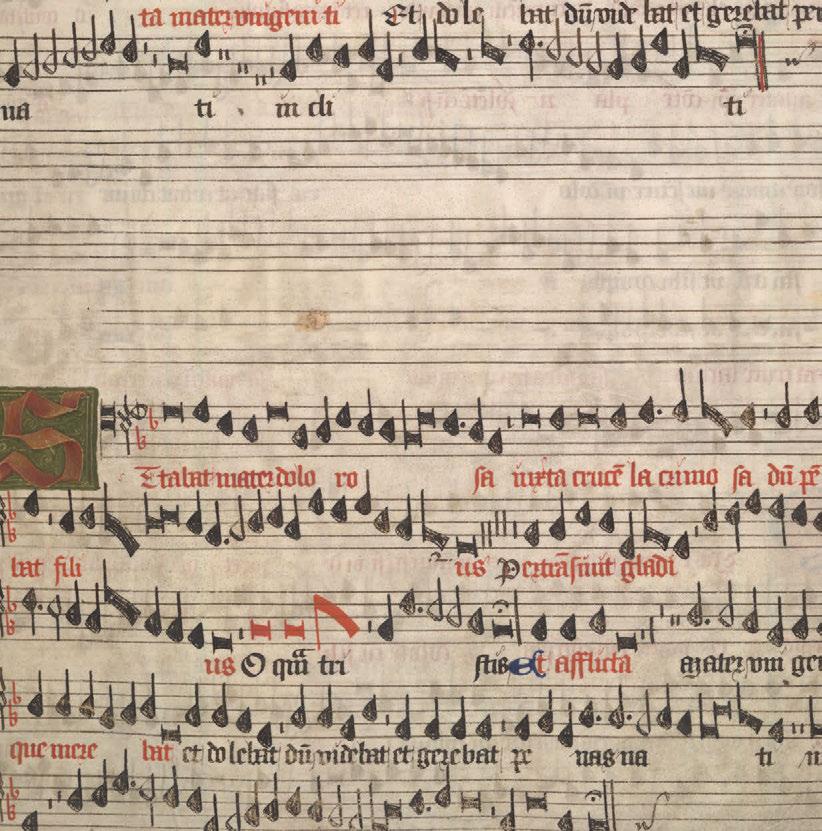 ta mater vnigeni ti Et do le bat dū vide bat et gerebat pe
na ti in cli ti
Stabat mater dolo ro sa iuxta crucē la crimo sa dū pē
bat fili us Pertrāsiuit gladi
us O quā tri stis et afflicta mater vni ge
que mere bat et do lebat dū videbat et gerebat pe nas na ti